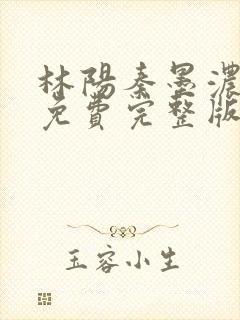 林陽秦墨濃
免費完整版
玉容小生